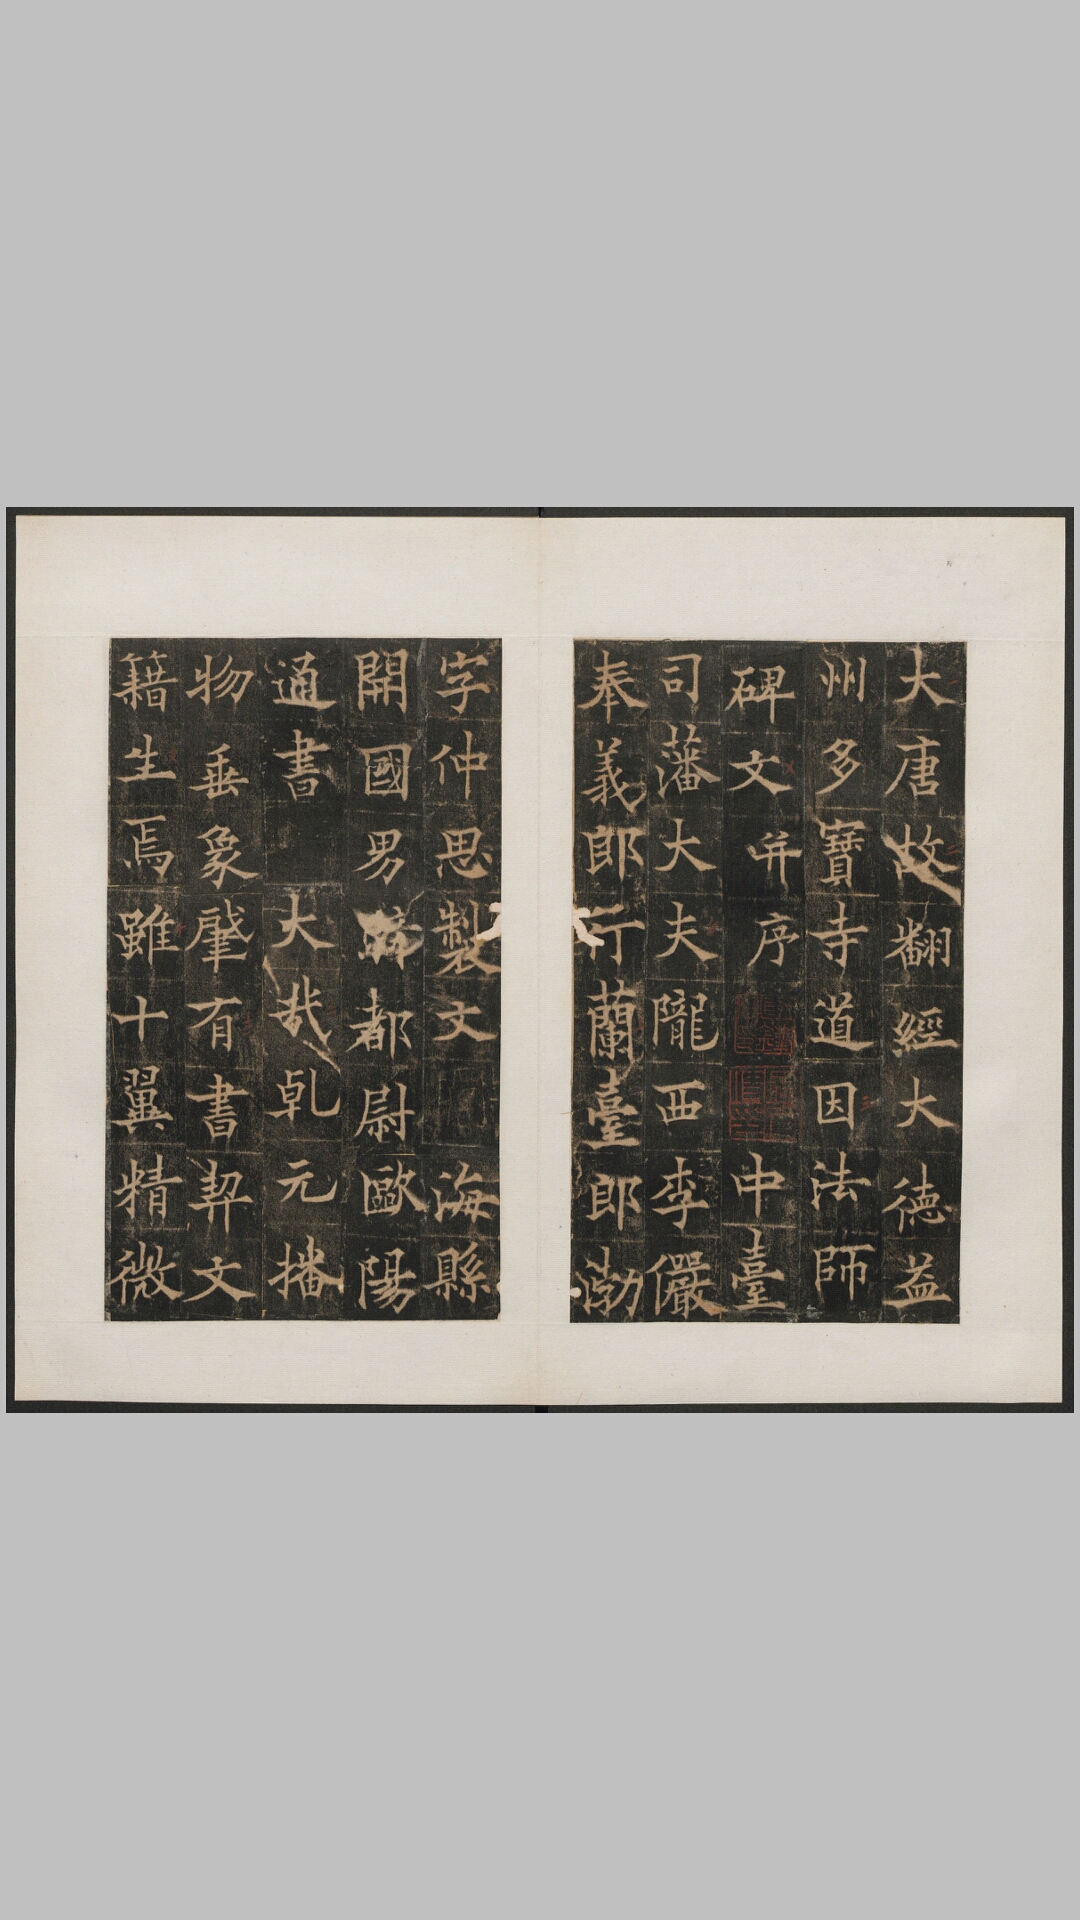 大唐故翻經大德益
州多寶寺道因法師
碑文并序 中臺
司藩大夫隴西李儼
奉義郎行蘭臺郎渤
字仲思製文 海縣
開國男騎都尉歐陽
通書 大哉乹元播
物垂象肇有書契文
籍生焉雖十翼精微